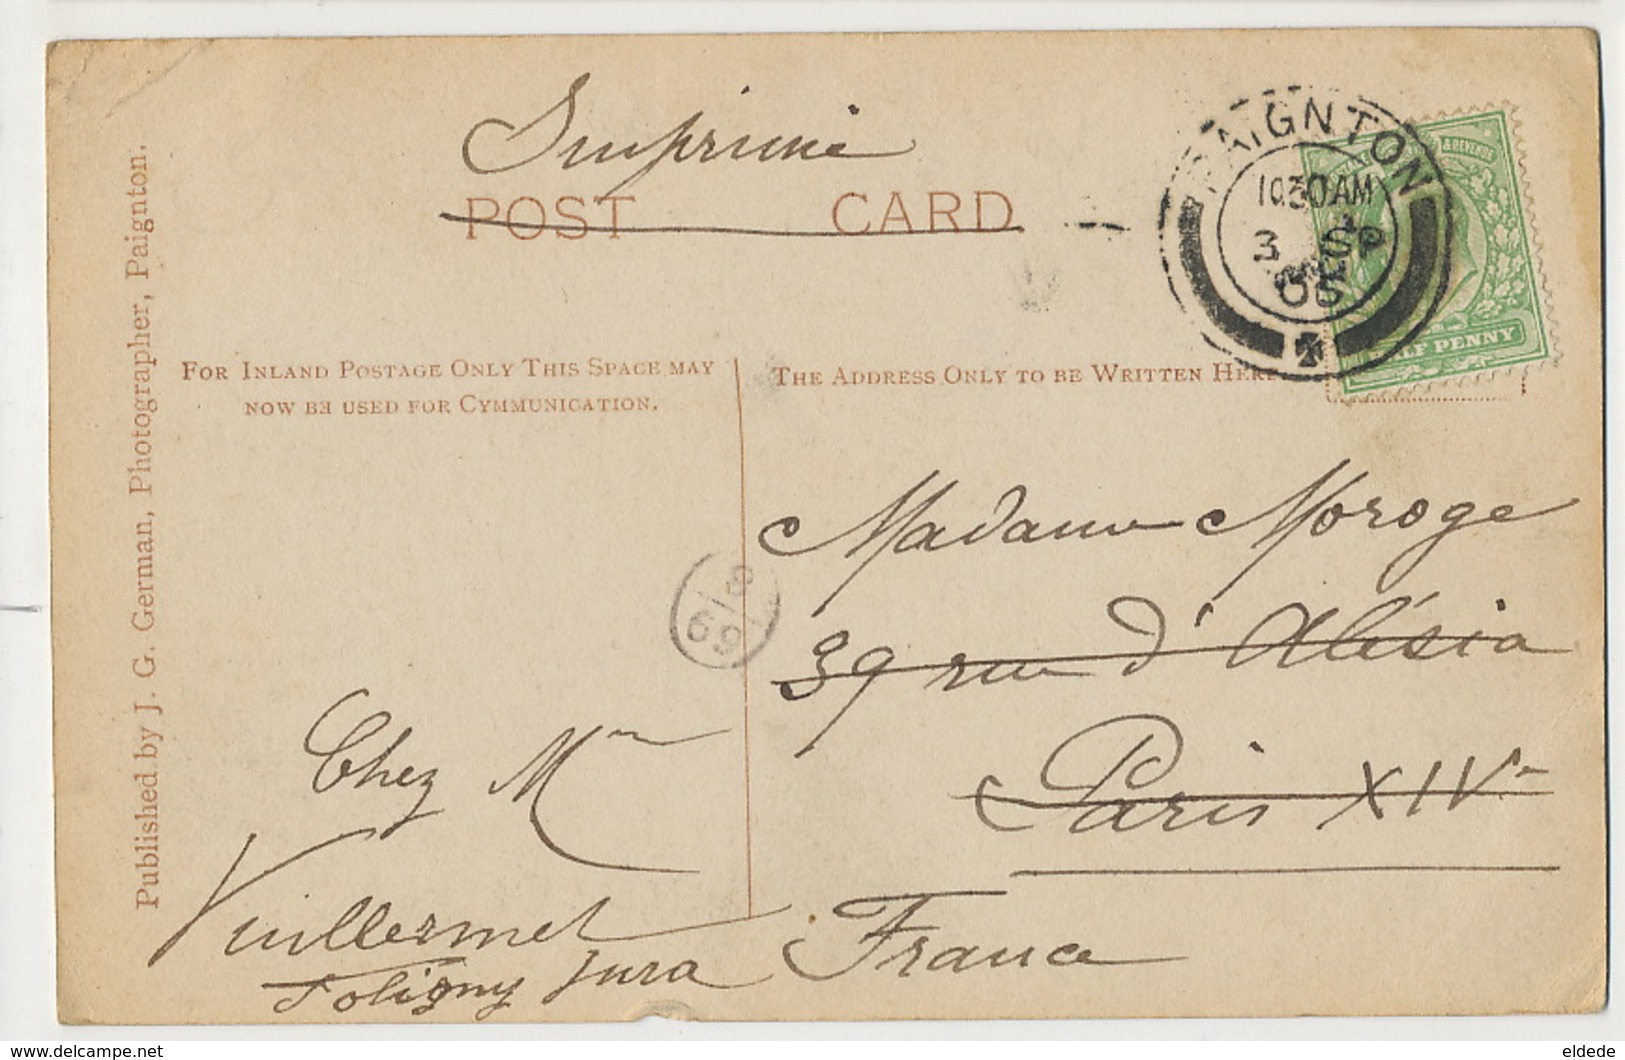 Imprimé
POST CARD
PAIGNTON
10 30 AM
3 SP
& REVENUE
HALF PENNY
FOR INLAND POSTAGE ONLY THIS SPACE MAY
NOW BE USED FOR CYMMUNICATION.
THE ADDRESS ONLY TO BE WRITTEN HERE.
Published by J. G. German, Photographer, Paignton.
Madame Moroge
39 rue d'Alésia
Paris XIVe
France
8
69
Chez Mme
Vuillermet
Poligny Jura
www.delcampe.net
eldede